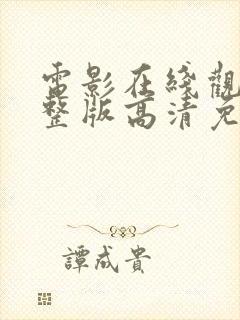 電影在綫觀
整版高清免
譚成貴